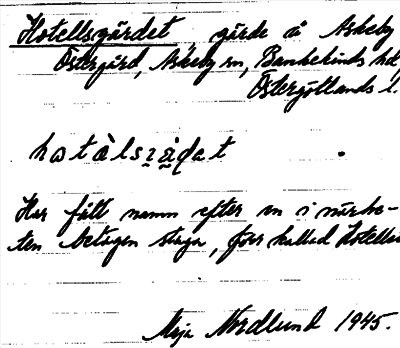 Hotellsgärdet gärde å Askeby
Östergård, Askeby sn, Bankekinds hd,
Östergötlands l.
hɑtälsjäḍet
Har fått namn efter en i närhe-
ten belägen stuga, förr kallad Hotells
Maja Nordlund 1945.